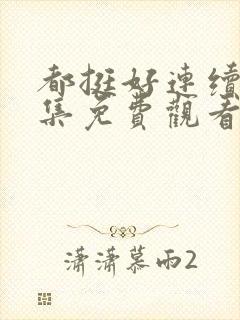 都挺好連續
集免費觀看
瀟瀟慕雨2